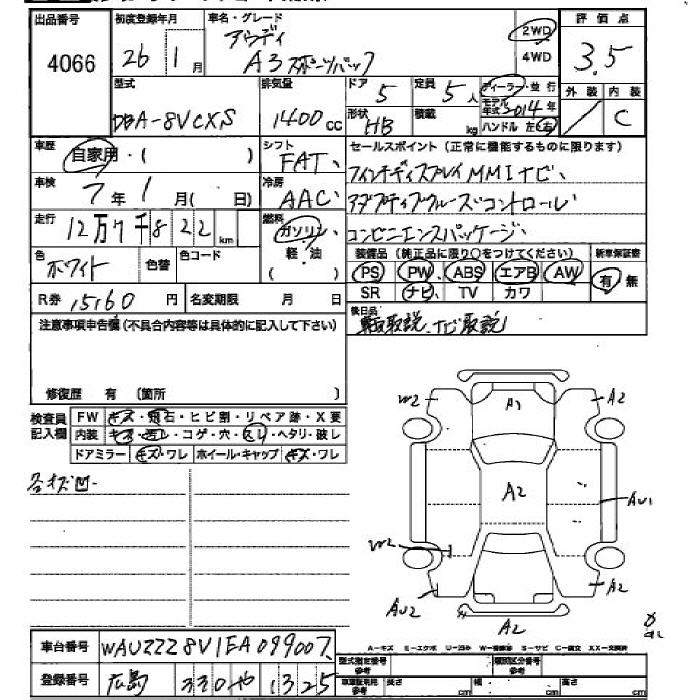 出品番号 4066
初度登録年月 26 1月
車名・グレード アウディ A3スポーツバック
2WD 4WD
評価点 3.5
外装 内装 C
型式 DBA-8VCXS
排気量 1400cc
ドア 5 定員 5人
形状 HB 積載 kg
ディーラー・並行
モデル年式 2014年
ハンドル 左・右
車歴 自家用・( )
シフト FAT
車検 7年1月( 日)
冷房 AAC
走行 12万7千822km
燃料 ガソリン 軽・油 ( )
色 ホワイト 色替 色コード
セールスポイント(正常に機能するものに限ります)
MMIナビ、
アダプティブクルーズコントロール
コンビニエンスパッケージ、
装備品(純正品に限り○をつけてください) 新車保証書
PS PW ABS エアB AW 有・無
SR ナビ TV カワ
R券 15160円 名変期限 月 日
後日品
取説、ナビ取説
注意事項申告欄(不具合内容等は具体的に記入して下さい)
修復歴 有 (箇所 )
検査員記入欄 FW キズ・飛石・ヒビ割・リペア跡・X要
内装 キズ・汚レ・コゲ・穴・スレ・ヘタリ・破レ
ドアミラー キズ・ワレ ホイール・キャップ キズ・ワレ
各キズ凹
W2 A1 A2
A2 AU1
W2
AU2 A2
A2
A-キズ E-エクボ U-凹み W-補修跡 S-サビ C-腐食 XX-交換済
車台番号 WAUZZZ8V1EA099007
登録番号 広島 330 や 1325
型式指定番号 参考 類別区分番号 参考
長さ cm 幅 cm 高さ cm